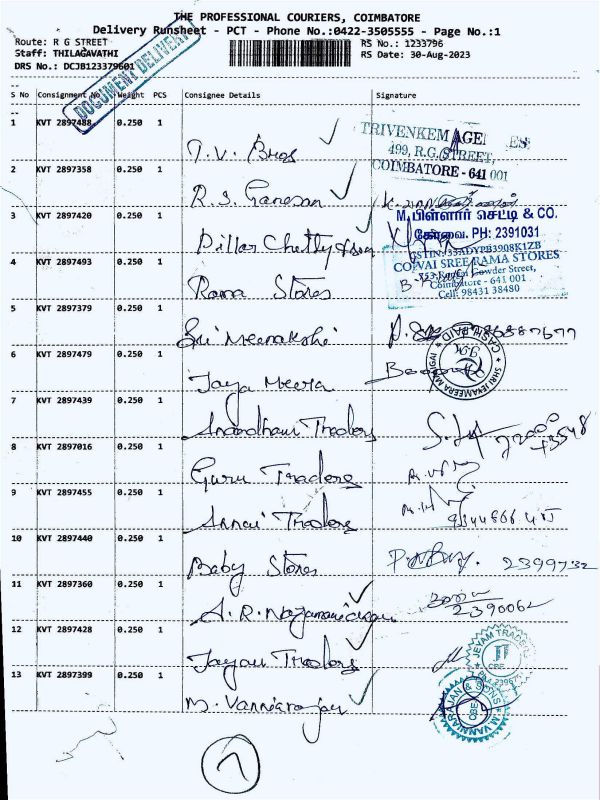 THE PROFESSIONAL COURIERS, COIMBATORE
Delivery Runsheet - PCT - Phone No.:0422-3505555 - Page No.:1
Route: R G STREET
RS No.: 1233796
Staff: THILAGAVATHI
RS Date: 30-Aug-2023
DRS No.: DCJB123379601
DOCUMENT DELIVERY
S No Consignment No Weight PCS Consignee Details Signature
1 KVT 2897488 0.250 1
T.V. Bros
TRIVENKEM AGE ES
499, R.G. STREET,
COIMBATORE - 641 001
2 KVT 2897358 0.250 1
R.S. Ganesan
3 KVT 2897420 0.250 1
Pillar Chetty
M.பிள்ளார் செட்டி & CO.
கோவை. PH: 2391031
4 KVT 2897493 0.250 1
Rama Stores
GSTIN: 33ADYPB3908K1ZB
COVAI SREE RAMA STORES
Gowder Street,
Coimbatore - 641 001
Cell: 98431 38480
5 KVT 2897379 0.250 1
Sri Meenakshi
6 KVT 2897479 0.250 1
Jaya Meera
CASH PAID
SHRI JEYAMEERA MALIGAI
7 KVT 2897439 0.250 1
Anandham Traders
8 KVT 2897016 0.250 1
Guru Traders
9 KVT 2897455 0.250 1
Annai Traders
10 KVT 2897440 0.250 1
Baby Stores
2399732
11 KVT 2897360 0.250 1
A.R.
2390062
12 KVT 2897428 0.250 1
Jayam Traders
JEYAM TRADERS
CBE
13 KVT 2897399 0.250 1
M. Vanniarajan
M. VANNIARAJAN & SONS
CBE
7